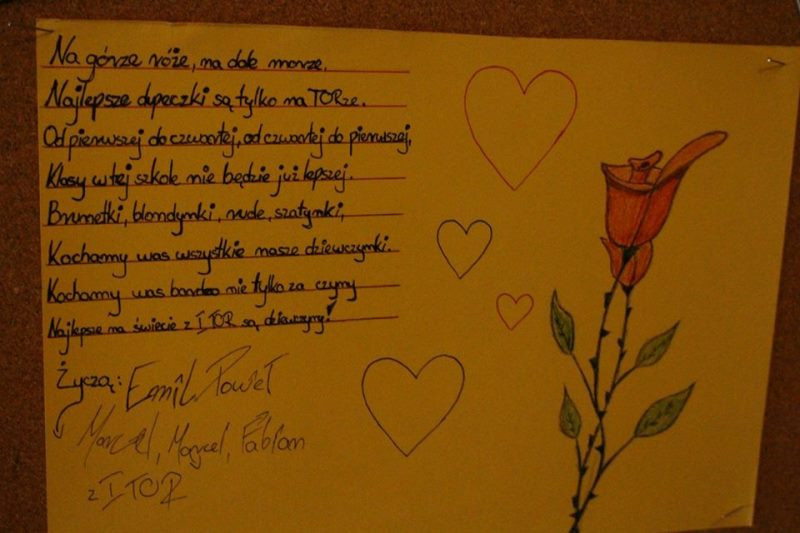 Na górze róże, na dole morze,
Najlepsze dupeczki są tylko na TORze.
Od pierwszej do czwartej, od czwartej do pierwszej,
Klasy w tej szkole nie będzie już lepszej.
Brunetki, blondynki, rude, szatynki,
Kochamy was wszystkie nasze dziewczynki.
Kochamy was bardzo nie tylko za czyny
Najlepsze na świecie z I TOR są dziewczyny!
Życzą: Emil, Paweł
Marcel, Marcel, Fabian
z I TOR